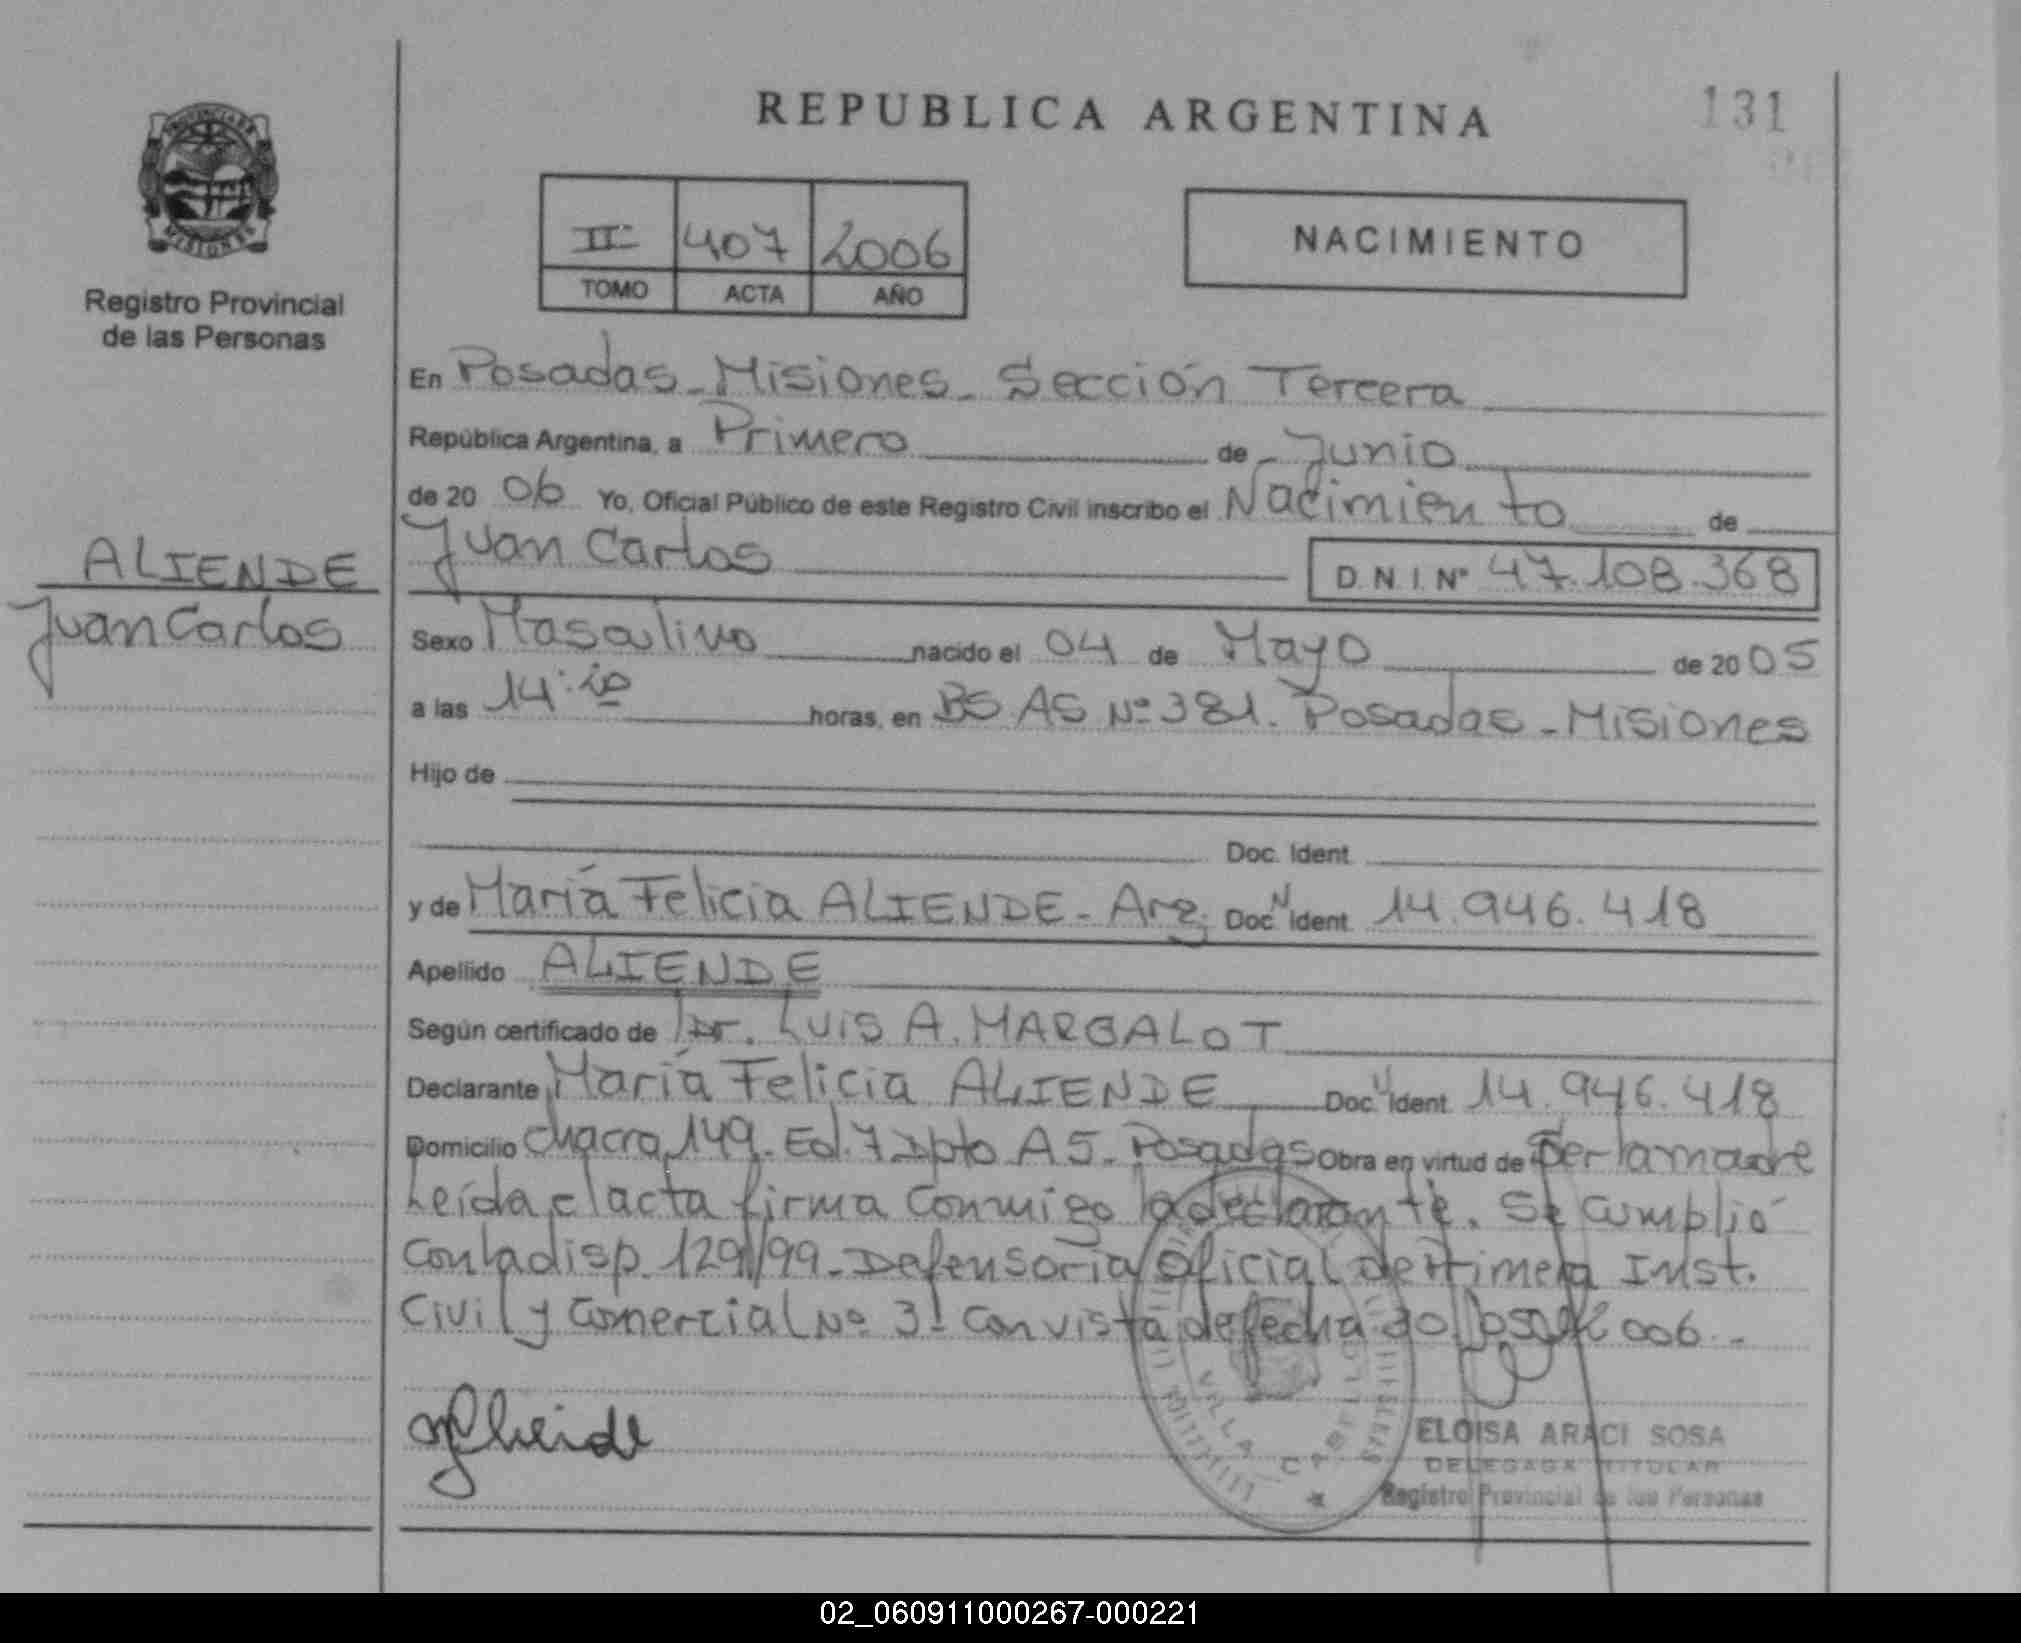 REPUBLICA ARGENTINA
131
PROVINCIA DE MISIONES
Registro Provincial
de las Personas
II 407 2006
TOMO ACTA AÑO
NACIMIENTO
En Posadas - Misiones - Sección Tercera
República Argentina, a Primero de Junio
de 20 06 Yo, Oficial Público de este Registro Civil inscribo el Nacimiento de
Juan Carlos D.N.I. Nº 47.108.368
ALIENDE
Juan Carlos
Sexo Masculino nacido el 04 de Mayo de 20 05
a las 14:10 horas, en BS AS Nº 381. Posadas - Misiones
Hijo de
Doc. Ident.
y de María Felicia ALIENDE - Arg. Doc. Ident. 14.946.418
Apellido ALIENDE
Según certificado de Dr. LUIS A. MARGALOT
Declarante María Felicia ALIENDE Doc. Ident. 14.946.418
Domicilio Chacra 149 - Ed. 7 Dpto A5 - Posadas Obra en virtud de Ser la madre
Leída el acta firma conmigo la declarante. Se cumplió
con la disp. 129/99 - Defensoria Oficial de Primera Inst.
Civil y Comercial Nº 3 - con vista de fecha 30/05/2006 -
VILLA CABELLO
ELOISA ARACI SOSA
DELEGADA TITULAR
Registro Provincial de las Personas
02_060911000267-000221